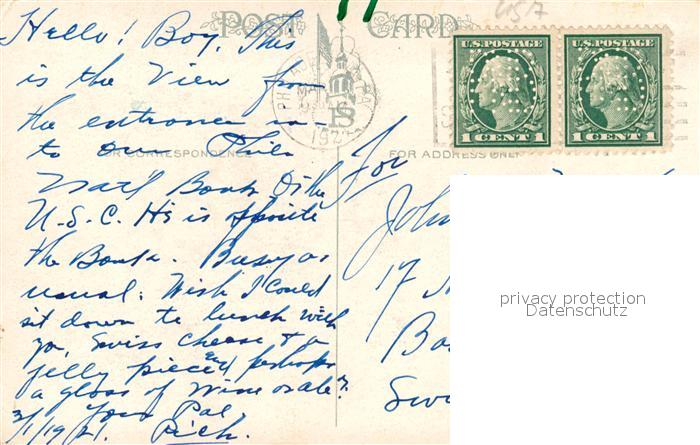 POST CARD
U.S. POSTAGE U.S. POSTAGE
1 CENT 1 1 CENT 1
FOR CORRESPONDENCE
FOR ADDRESS ONLY
Hello! Boy, This
is the View from
the entrance in-
to our Phila
Nat'l Bank
U.S.C. H's is opposite
the Bank. Busy as
usual. Wish I could
sit down to lunch with
you, Swiss cheese & a
jelly piece and perhaps
a glass of Wine or ale?
Your Pal
3/1/1921. Rich.
For
John
17
privacy protection
Datenschutz